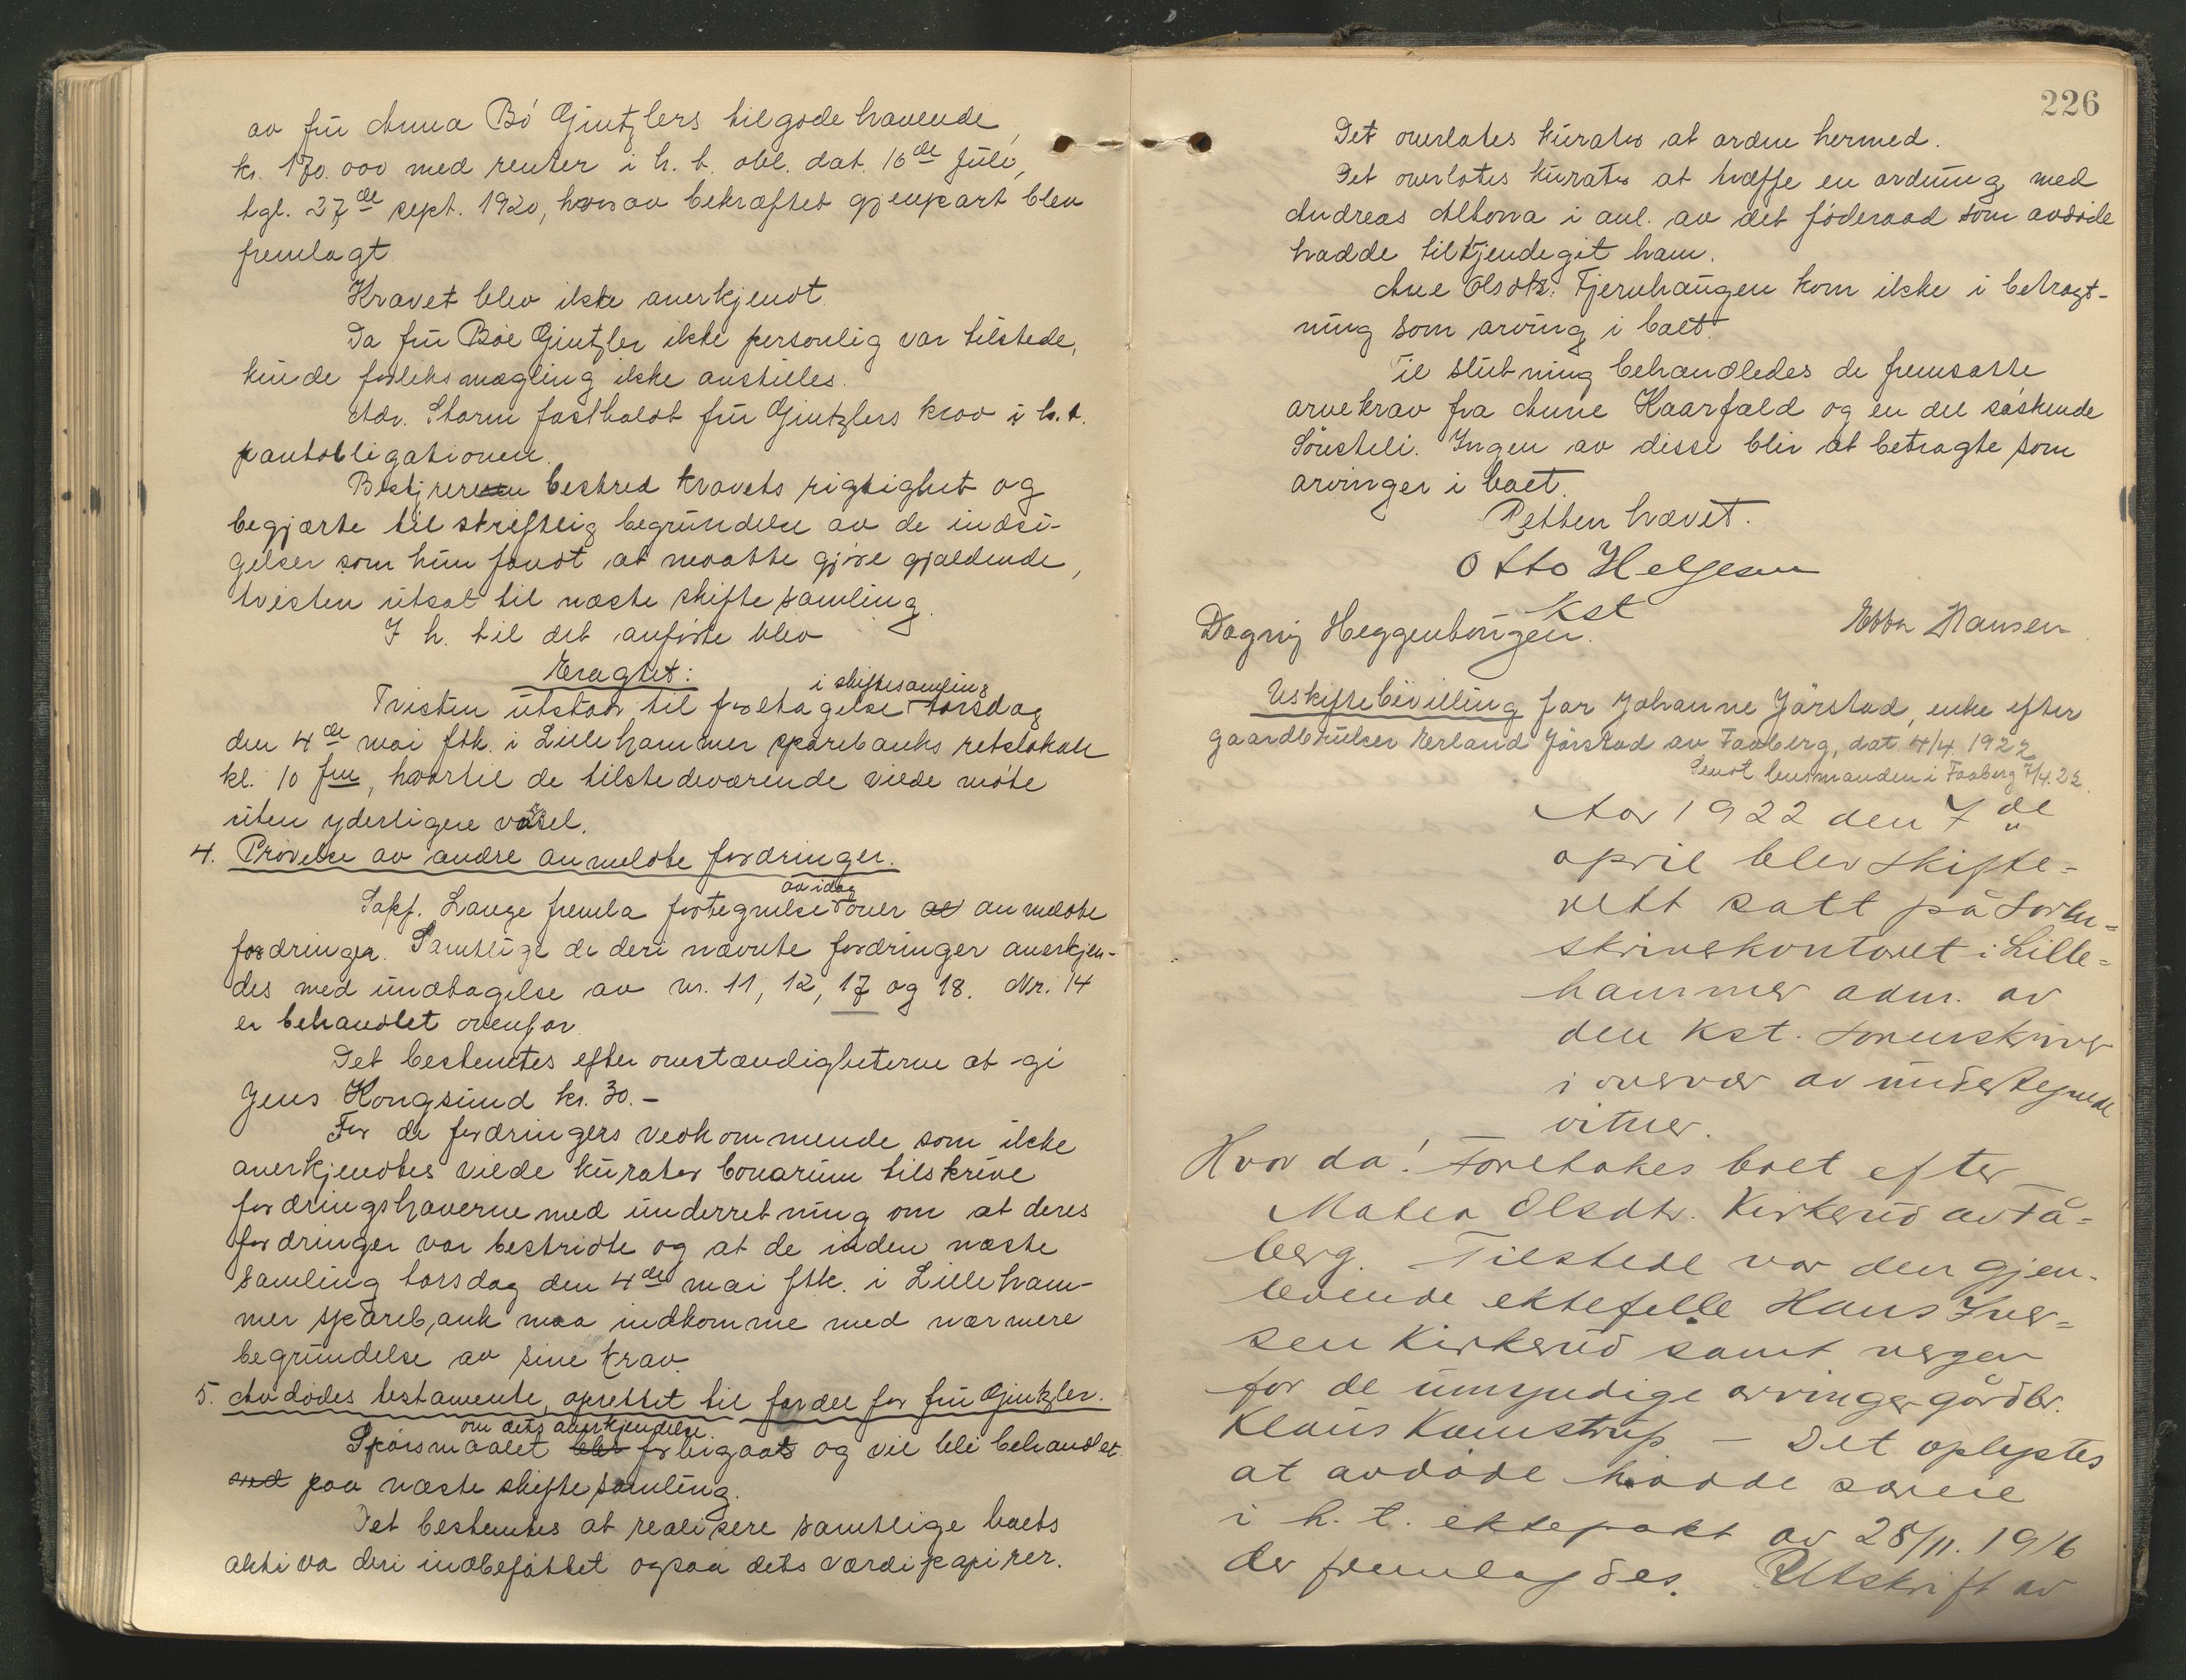 av fru Anna Bö Gjintzlers tilgodehavende,
kr. 170.000 med renter i h. t. obl. dat. 16de juli,
tgl. 27de sept. 1920, hvorav bekræftet gjenpart blev
fremlagt.
Kravet blev ikke anerkjendt.
Da fru Böe Gjintzler ikke personlig var tilstede,
kunde forliksmægling ikke anstilles.
Adv. Storm fastholdt fru Gjintzlers krav i h. t.
pantobligationen.
Bestyreren bestred kravets rigtighet og
begjærte til skriftlig begrundelse av de indsi-
gelser som hun fandt at maatte gjöre gjældende,
tvisten utsat til næste skiftesamling.
I h. til det anförte blev
Eragtet:
Tvisten utstaar til foretagelse i skiftesamling torsdag
den 4de mai ftk. i Lillehammer sparebanks retslokale
kl. 10 fm, hvortil de tilstedeværende vilde möte
uten yderligere varsel.
4. Prövelse av andre anmeldte fordringer.
Sakf. Lange fremla fortegnelse av idag over al anmeldte
fordringer. Samtlige de deri nævnte fordringer anerkjen-
des med undtagelse av nr. 11, 12, 17 og 18. Nr. 14
er behandlet ovenfor.
Det bestemtes efter omstændigheterne at gi
Jens Kongsund kr. 30.-
For de fordringers vedkommende som ikke
anerkjendtes vilde kurator bonarum tilskrive
fordringshaverne med underretning om at deres
fordringer var bestridte og at de inden næste
samling torsdag den 4de mai ftk. i Lilleham-
mer sparebank maa indkomme med nærmere
begrundelse av sine krav.
5. Avdödes testamente, oprettet til fordel for fru Gjintzler.
Spörsmaalet om dets anerkjendelse blev forbigaat og vil bli behandlet
ved paa næste skiftesamling.
Det bestemtes at realisere samtlige boets
aktiva deri indbefattet ogsaa dets værdipapirer.
226
Det overlates kurator at ordne hermed.
Det overlates kurator at træffe en ordning med
Andreas Altona i anl. av det föderaad som avdöde
hadde tilkjendegit ham.
Ane Olsdtr. Fjernhaugen kom ikke i betragt-
ning som arving i boet.
Til slutning behandledes de fremsatte
arvekrav fra Anne Kaarfald og en del söskende
Sönsteli. Ingen av disse blir at betragte som
arvinger i boet.
Retten hævet.
Otto Helgesen
Kst
Dagny Heggenhougen. Ebba Hansen
Uskiftebevilling for Johanne Jörstad, enke efter
gaardbruker Erland Jörstad av Faaberg, dat. 4/4 1922
Sendt lensmanden i Faaberg 7/4.22.
Aar 1922 den 7de
april blev skifte-
rett satt på soren-
skriverkontoret i Lille-
hammer adm. av
den kst. sorenskriver
i overvær av undertegnede
vitner.
Hvor da! Foretakes boet efter
Matea Olsdtr. Kirkerud av Få-
berg. Tilstede var den gjen-
levende ektefelle Hans Iver-
sen Kirkerud samt vergen
for de umyndige arvinger gårdbr.
Klaus Kamstrup. - Det oplystes
at avdöde hadde særeie
i h. t. ektepakt av 28/11. 1916
der fremlagdes. Utskrift av